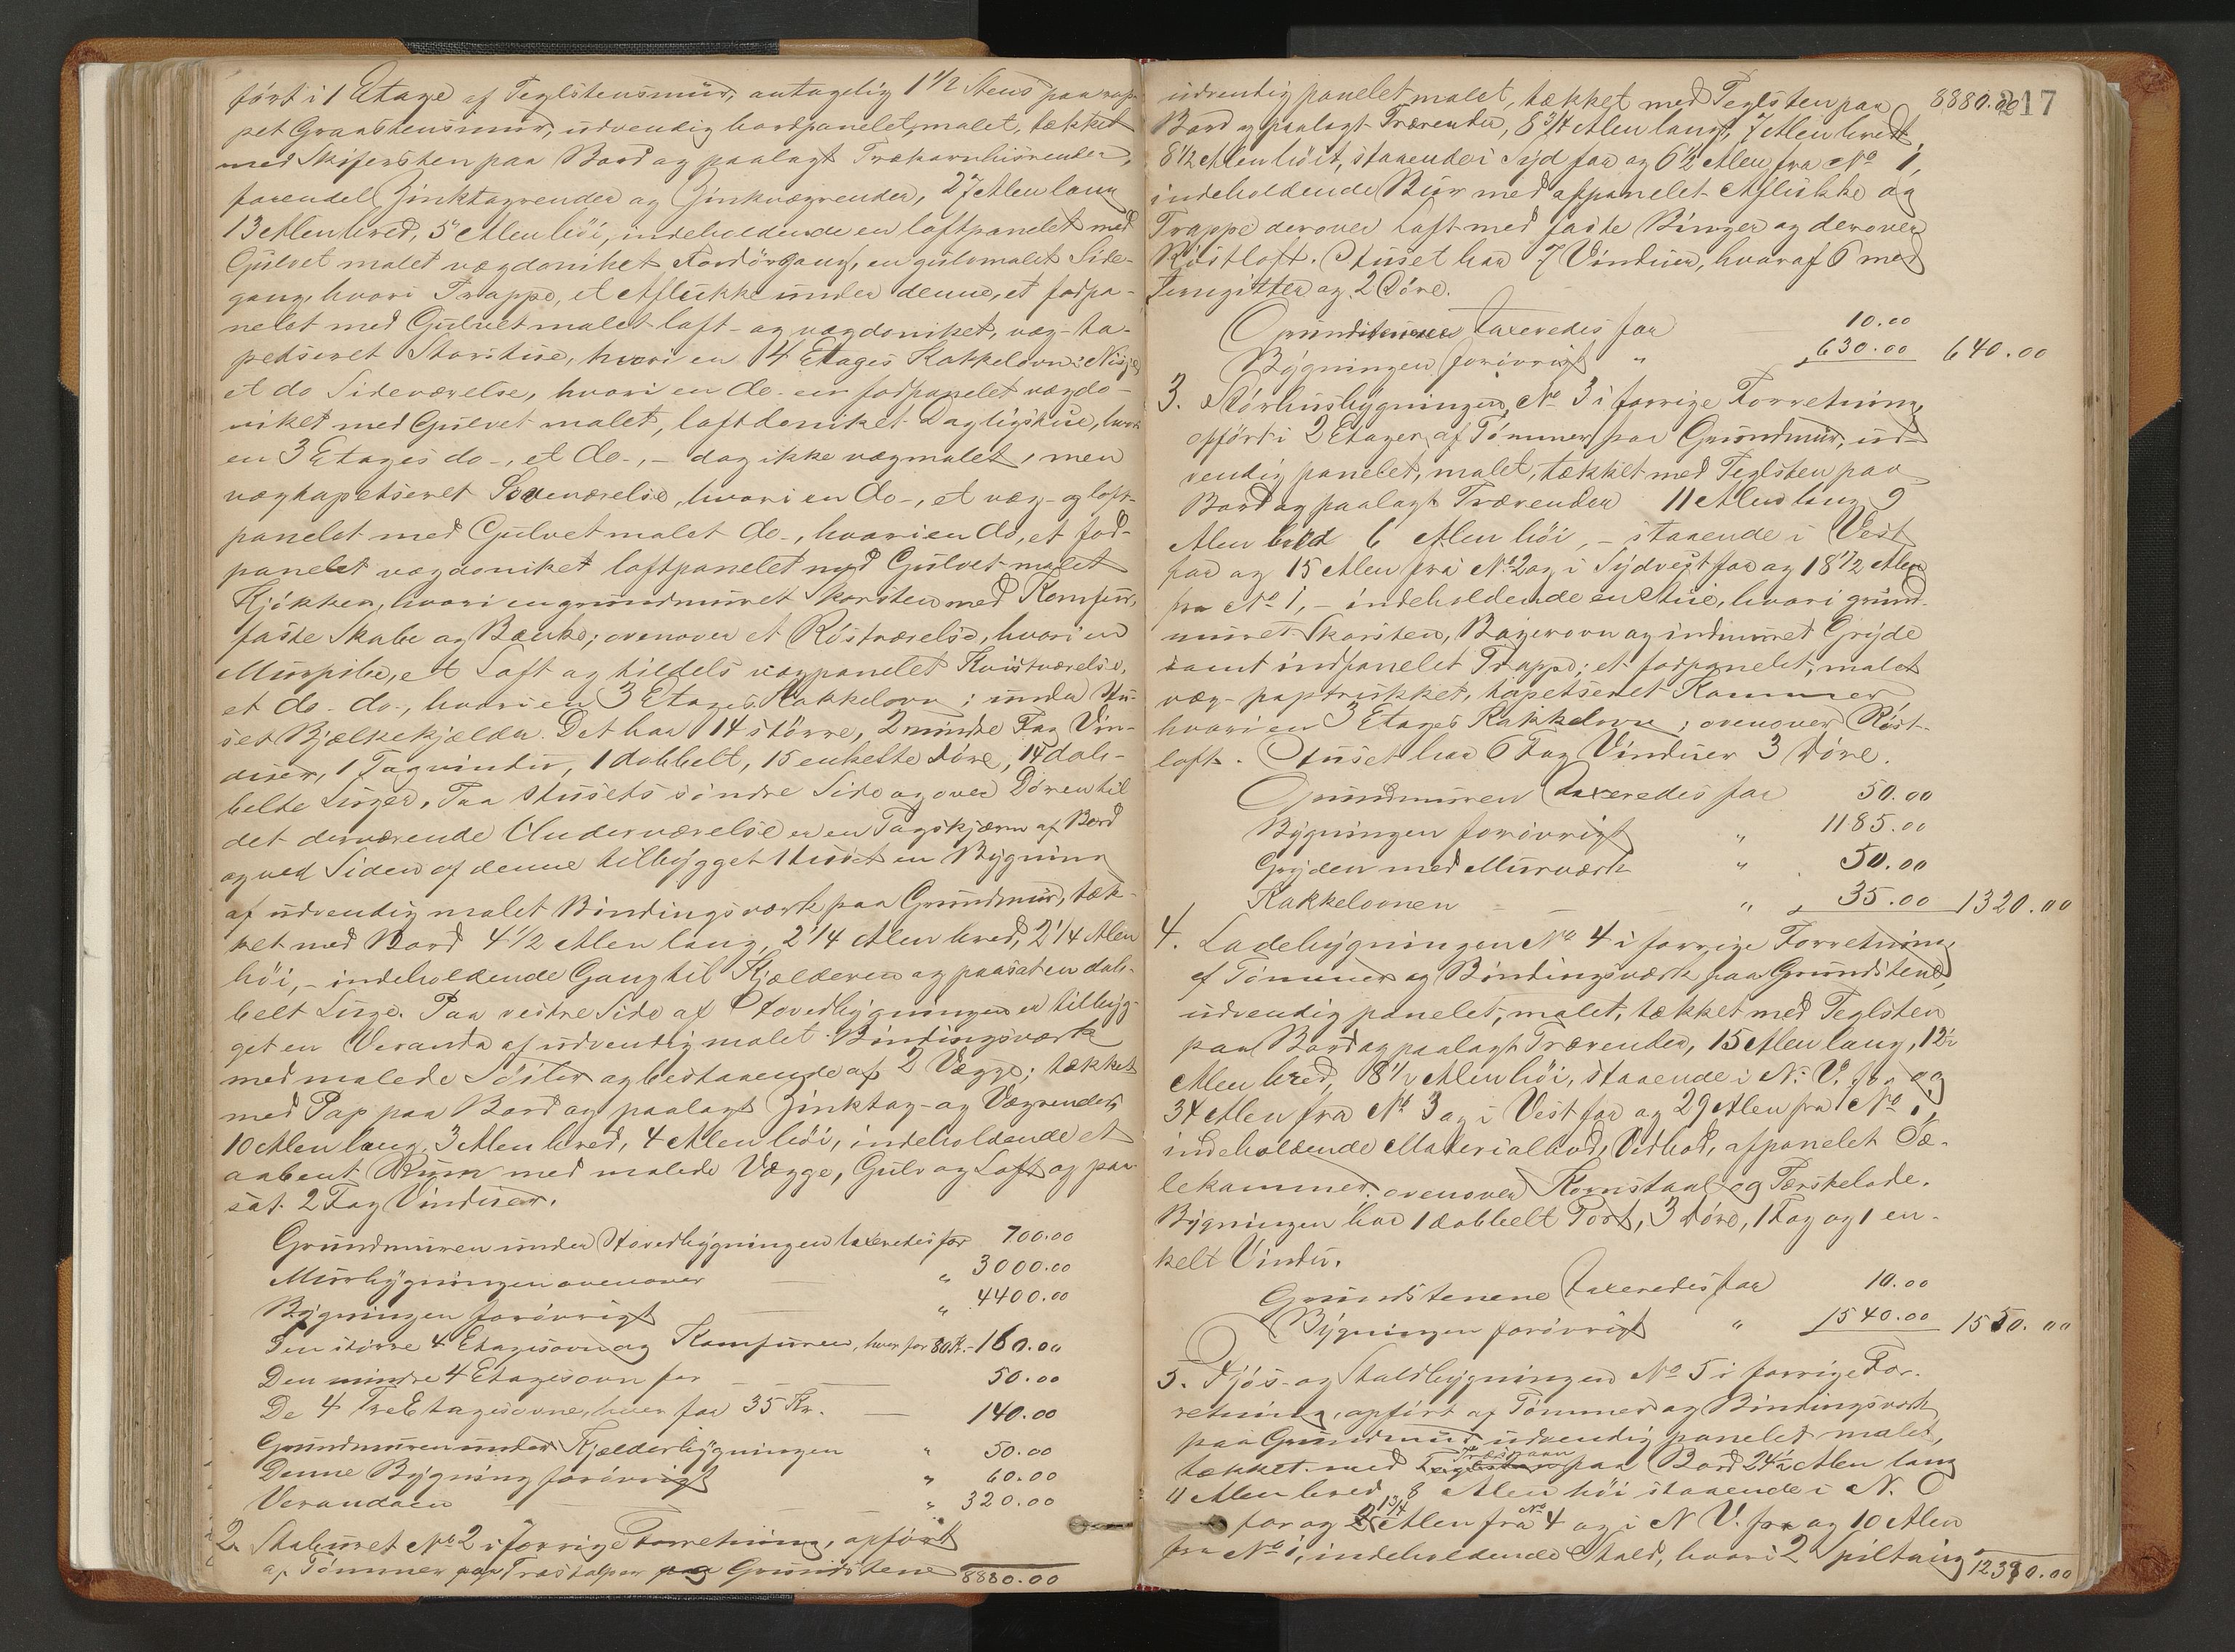 ført i 1 Etage af Teglstensmuur, antagelig 1 1/2 Stens paa rap-
pet Graastensmuur, udvendig bordpanelet, malet, tækket
med Skifersten paa Bord og paalagt
forendel Zinktagrender og Zinkvægrender, 27 Alen lang
13 Alen bred, 5 Alen høi, indeholdende en loftpanelet med
Gulvet malet vægdoniket Fordørgang, en gulvmalet Side-
gang, hvori Trappe, et Aflukke under denne, et fodpa-
nelet med Gulvet malet loft- og vægdoniket, væg-ta-
petseret Storstue, hvori en 4 Etages Kakkelovn i Nisje
et do Sideværelse, hvori en do. en fodpanelet vægdo-
niket med Gulvet malet, loftdoniket Dagligstue, hvori
en 3 Etages do-, et do-, - dog ikke vægmalet, men
vægtapetseret Soveværelse, hvori en do-, et væg- og loft-
panelet med Gulvet malet do-, hvori en do, et fod-
panelet vægdoniket loftpanelet med Gulvet malet
Kjøkken, hvori en grundmuret Skorsten med Komfur,
faste Skabe og Bænke; ovenover et Røstværelse, hvori en
Murpibe, et Loft og tildels vægpanelet Kvistværelse,
et do- do-, hvori en 3 Etages Kakkelovn; under Hu-
set Bjælkekjælder. Det har 14 større, 2 mindre Fag Vin-
duer, 1 Tagvindu, 1 dobbelt, 15 enkelte Døre, 14 dob-
belte Luger. Paa Husets søndre Side og over Døren til
det derværende Underværelse er en Tagskjærm af Bord
og ved Siden af denne tilbygget Huset en Bygning
af udvendig malet Bindingsværk paa Grundmur, tæk-
ket med Bord 4 1/2 Alen lang, 2 1/4 Alen bred, 2 1/4 Alen
høi, - indeholdende Gang til Kjælderen og paasat en dob-
belt Luge. Paa vestre Side af Hovedbygningen er tilbyg-
get en Veranda af udvendig malet Bindingsværk
med malede Søiler og bestaaende af 2 Vægge; tækket
med Pap paa Bord og paalagt Zinktag- og Vægrender,
10 Alen lang, 3 Alen bred, 4 Alen høi, indeholdende et
aabent Rum med malede Vægge, Gulv og Loft og paa-
sat 2 Fag Vinduer.
Grundmuren under Hovedbygningen taxeredes for 700.00
Murbygningen ovenover — " 3000.00
Bygningen forøvrigt — " 4400.00
Den større 4 Etagesovn og Komfuren, hver for 80 Kr. - 160.00
Den mindre 4 Etagesovn for — 50.00
De 4 TreEtagesovne, hver for 35 Kr. — 140.00
Grundmuren under Kjælderbygningen " 50.00
Denne Bygning forøvrigt " 60.00
Verandaen — " 320.00
2. Staburet No 2 i forrige Forretning, opført
af Tømmer paa Træstolper paa Grundstene 8880.00
217
udvendig panelet, malet, tækket med Teglsten paa 8880.00
Bord og paalagt Trærender, 8 3/4 Alen langt, 7 Alen bredt
8 1/2 Alen høit, staaende i Syd for og 6 1/2 Alen fra No 1,
indeholdende Bur med afpanelet Aflukke og
Trappe derover Loft med faste Binger og derover
Røstloft. Huset har 7 Vinduer, hvoraf 6 med
Jerngitter og 2 Døre.
Grundstenene taxeredes for 10.00
Bygningen forøvrigt " 630.00 640.00
3. Størhusbygningen, No 3 i forrige Forretning,
opført i 2 Etager af Tømmer paa Grundmur, ud-
vendig panelet, malet, tækket med Teglsten paa
Bord og paalagt Trærender 11 Alen lang 9
Alen bred 6 Alen høi, - staaende i Vest
for og 15 Alen fra No 2 og i Sydvest for og 18 1/2 Alen
fra No 1, - indeholdende en Stue, hvori grund-
muret Skorsten, Bagerovn og indmuret Gryde
samt indpanelet Trappe; et fodpanelet, malet
væg- paptrukket, tapetseret Kammer
hvori en 3 Etages Kakkelovn; ovenover Røst-
loft. Huset har 6 Fag Vinduer 3 Døre.
Grundmuren taxeredes for 50.00
Bygningen forøvrigt " 1185.00
Gryden med Murværk " 50.00
Kakkelovnen — " 35.00 1320.00
4. Ladebygningen No 4 i forrige Forretning
af Tømmer og Bindingsværk paa Grundstene,
udvendig panelet, malet, tækket med Teglsten
paa Bord og paalagt Trærender, 15 Alen lang, 12 1/2
Alen bred, 8 1/2 Alen høi, staaende i N. V. for og
34 Alen fra No 3 og i Vest for og 29 Alen fra No 1,
indeholdende Materialbod, Vedbod, afpanelet Sæ-
lekammer, ovenover Kornstaal og Tærskelade.
Bygningen har 1 dobbelt Port, 3 Døre, 1 Fag og 1 en-
kelt Vindu.
Grundstenene taxeredes for 10.00
Bygningen forøvrigt " 1540.00 1550.00
5. Fjøs- og Staldbygningen No 5 i forrige For-
retning, opført af Tømmer og Bindingsværk
paa Grundmur udvendig panelet malet,
tækket med Teglsten Træspaan paa Bord 24 1/2 Alen lang
11 Alen bred, 8 Alen høi staaende i N. O
for og 13/4 Alen fra No 4 og i N V. for og 10 Alen
fra No 1, indeholdende Stald, hvori 2 Spiltaug 12390.00